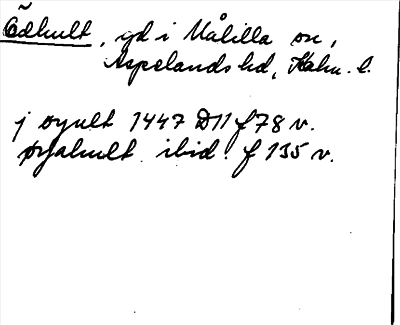 Ödhult, gd i Målilla sn,
Aspelands hd, Kalm. l.
j øyult 1447 D11 f 78 v.
øghahult ibid. f 135 v.